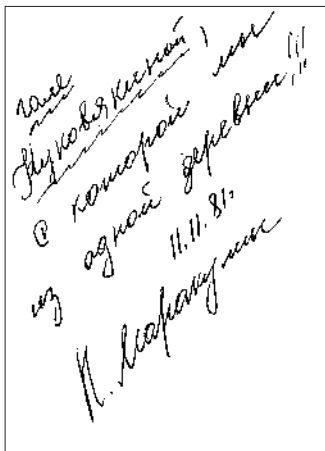 Гале
Жуковякиной,
с которой мы
из одной деревни!!!
11.11.81г
К. Маракулин